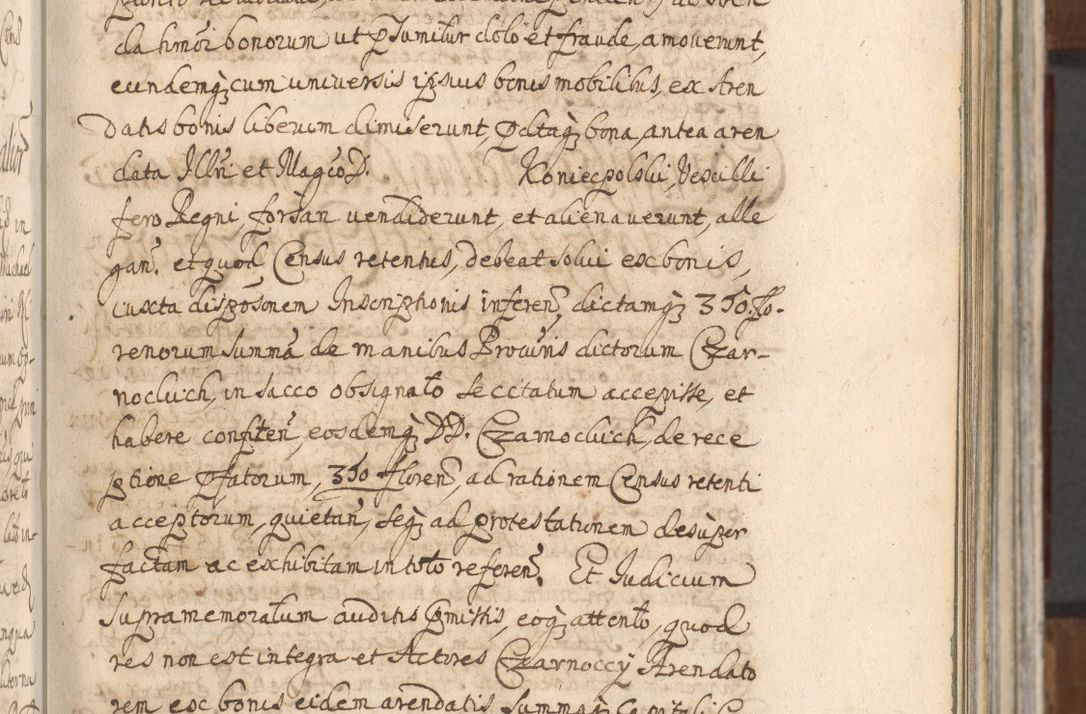 da hmõi bonorum ut pſumitur dolo et fraude, amoverunt,
eundemqȝ cum universis ipsius bonis mobilibus, ex Aren
datis bonis liberum dimiserunt, pdtaqȝ bona, antea aren
data Illñ et Magco D. Koniecpolski, Vexilli
fero Regni, forsan vendiderunt, et alienaverunt, alle
gan̄. et quod Census retentus, debeat solui ex bonis,
iuxta disposõnem Inscriptionis inferen̄, dictamqȝ 350. flo-
renorum summã de manibus Procuris dictorum Czar-
nockich, in sacco obsignato se citatum accepisse, et
habere confiten̄, eosdemqȝ DD. Czarnockich, de rece
ptione pfatorum, 350 floren̄, ad rationem Census retenti
acceptorum, quietan̄, seqȝ ad protestationem desùper
factam ac exhibitam in toto referen̄. Et Iudicium
supramemoratum auditis pmissis, eoqȝ attento, quod
res non est integra et Actores Czarnoccy Arendato
rem ex bonis eidem arendatis summaqȝ